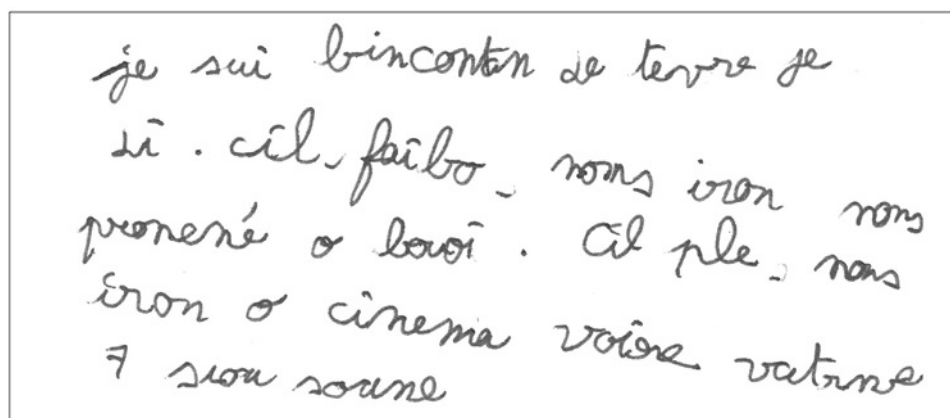 je sui bincontan de tevre je
si . cil, faibo, nous iron nous
promené o bouoi . Cil ple, nous
iron o cinema voire vatmne
7 siou soune